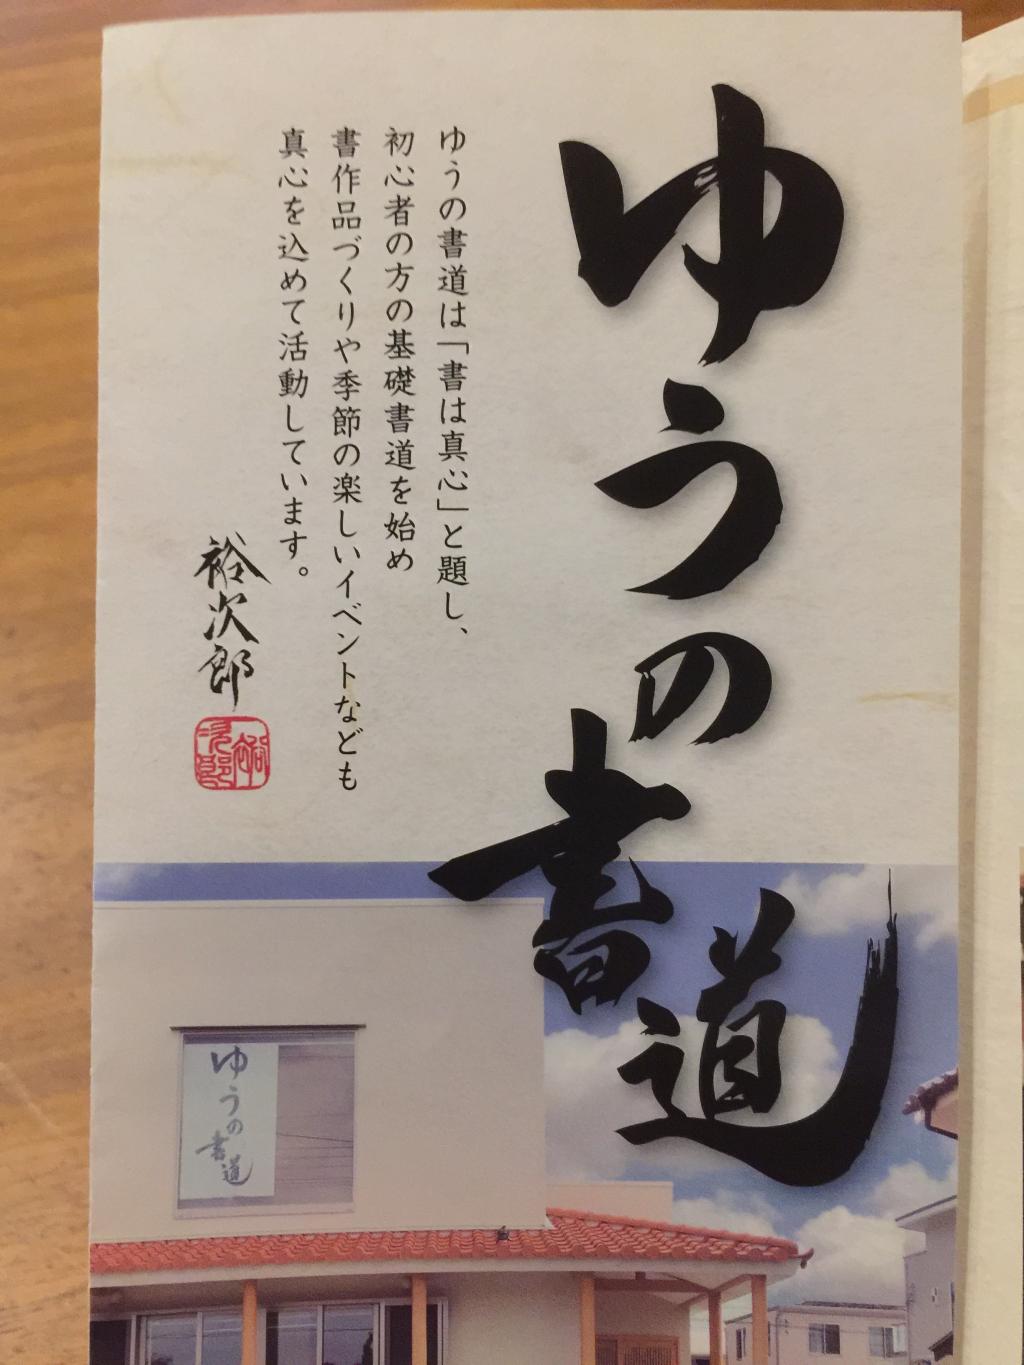 ゆうの書道
ゆうの書道は「書は真心」と題し、
初心者の方の基礎書道を始め
書作品づくりや季節の楽しいイベントなども
真心を込めて活動しています。
裕次郎
裕次郎
ゆうの書道